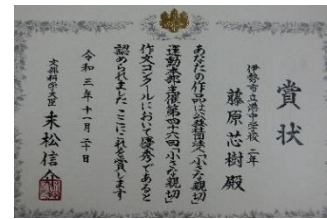 賞状
伊勢市立港中学校 二年
藤原芯樹 殿
あなたの作品は公益社団法人「小さな親切」
運動本部主催第四十六回「小さな親切」
作文コンクールにおいて優秀であると
認められました ここにこれを賞します
令和三年十一月二十日
文部科学大臣 末松信介